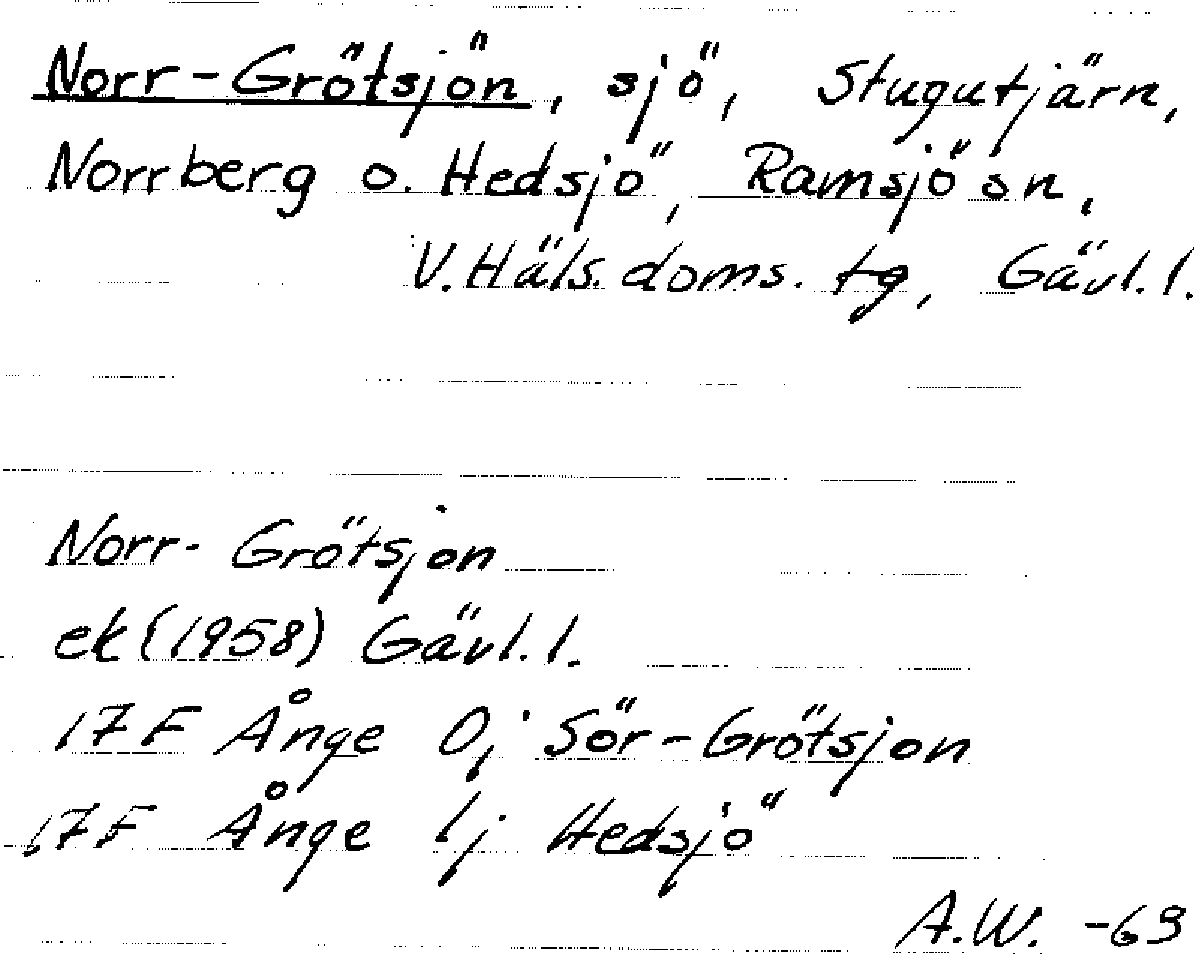 Norr-Grötsjön, sjö, Stugutjärn,
Norrberg o. Hedsjö, Ramsjö sn,
V.Häls.doms.tg, Gävl.l.
Norr-Grötsjon
ek(1958) Gävl.l.
17F Ånge 0j Sör-Grötsjon
17F Ånge 1j Hedsjö
A.W. -63